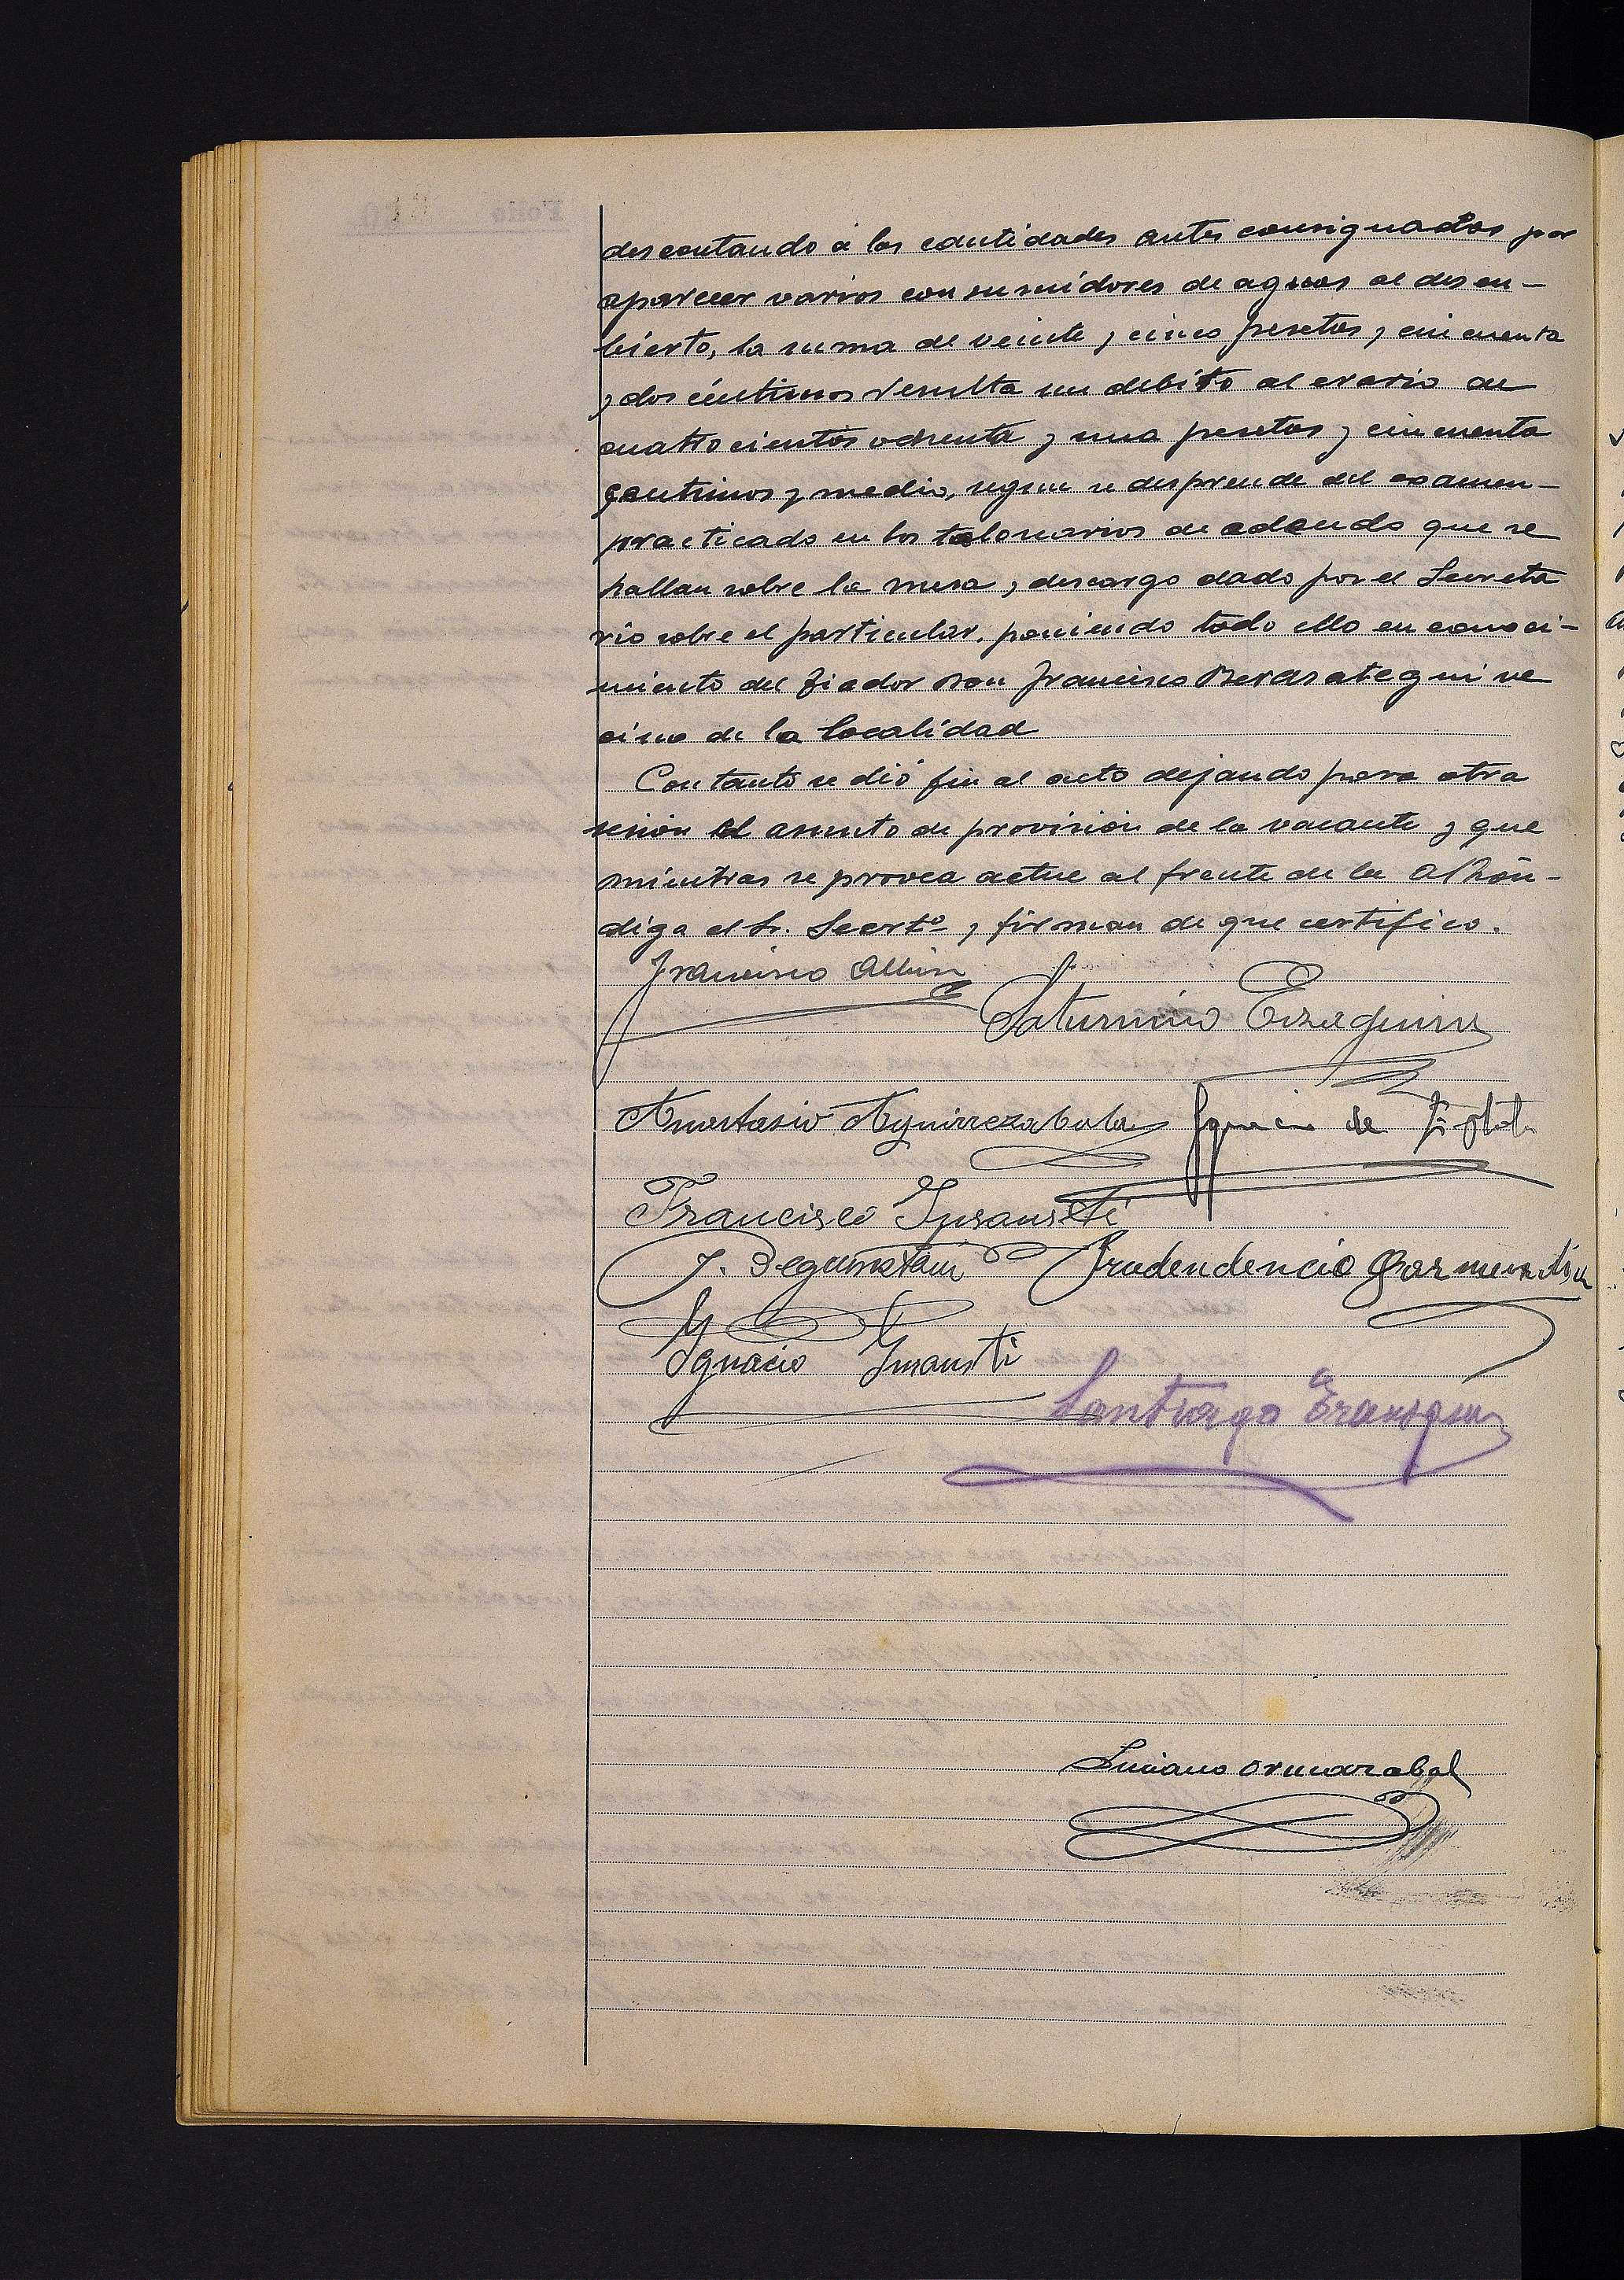 descontando á las cantidades antes consignadas por
aparecer varios consumidores de aguas al descu-
bierto, la suma de veinte y cinco pesetas y cincuenta
y dos céntimos resulta un debito al erario de
cuatrocientos ochenta y una pesetas y cincuenta
centimos y medio, segun se desprende del examen-
practicado en los talonarios de adeudo que se
hallan sobre la mesa y descargo dado por el Secreta
rio sobre el particular, poniendo todo ello en conoci-
miento del fiador Don Francisco Berasategui ve
cino de la localidad
Con tanto se dió fin al acto dejando para otra
sesión el asunto de provisión de la vacante y que
mientras se provea actue al frente de la Alhón-
diga el Sr. Secrtº y firman de que certifico.
Francisco Albisu
Saturnino Eizaguirre
Anastasio Aguirrezabala Ignacio de
Francisco Insausti
J. Prudendencio Garmendia
Ignacio Insausti
Santiago Erausquin
Luciano Ormazabal